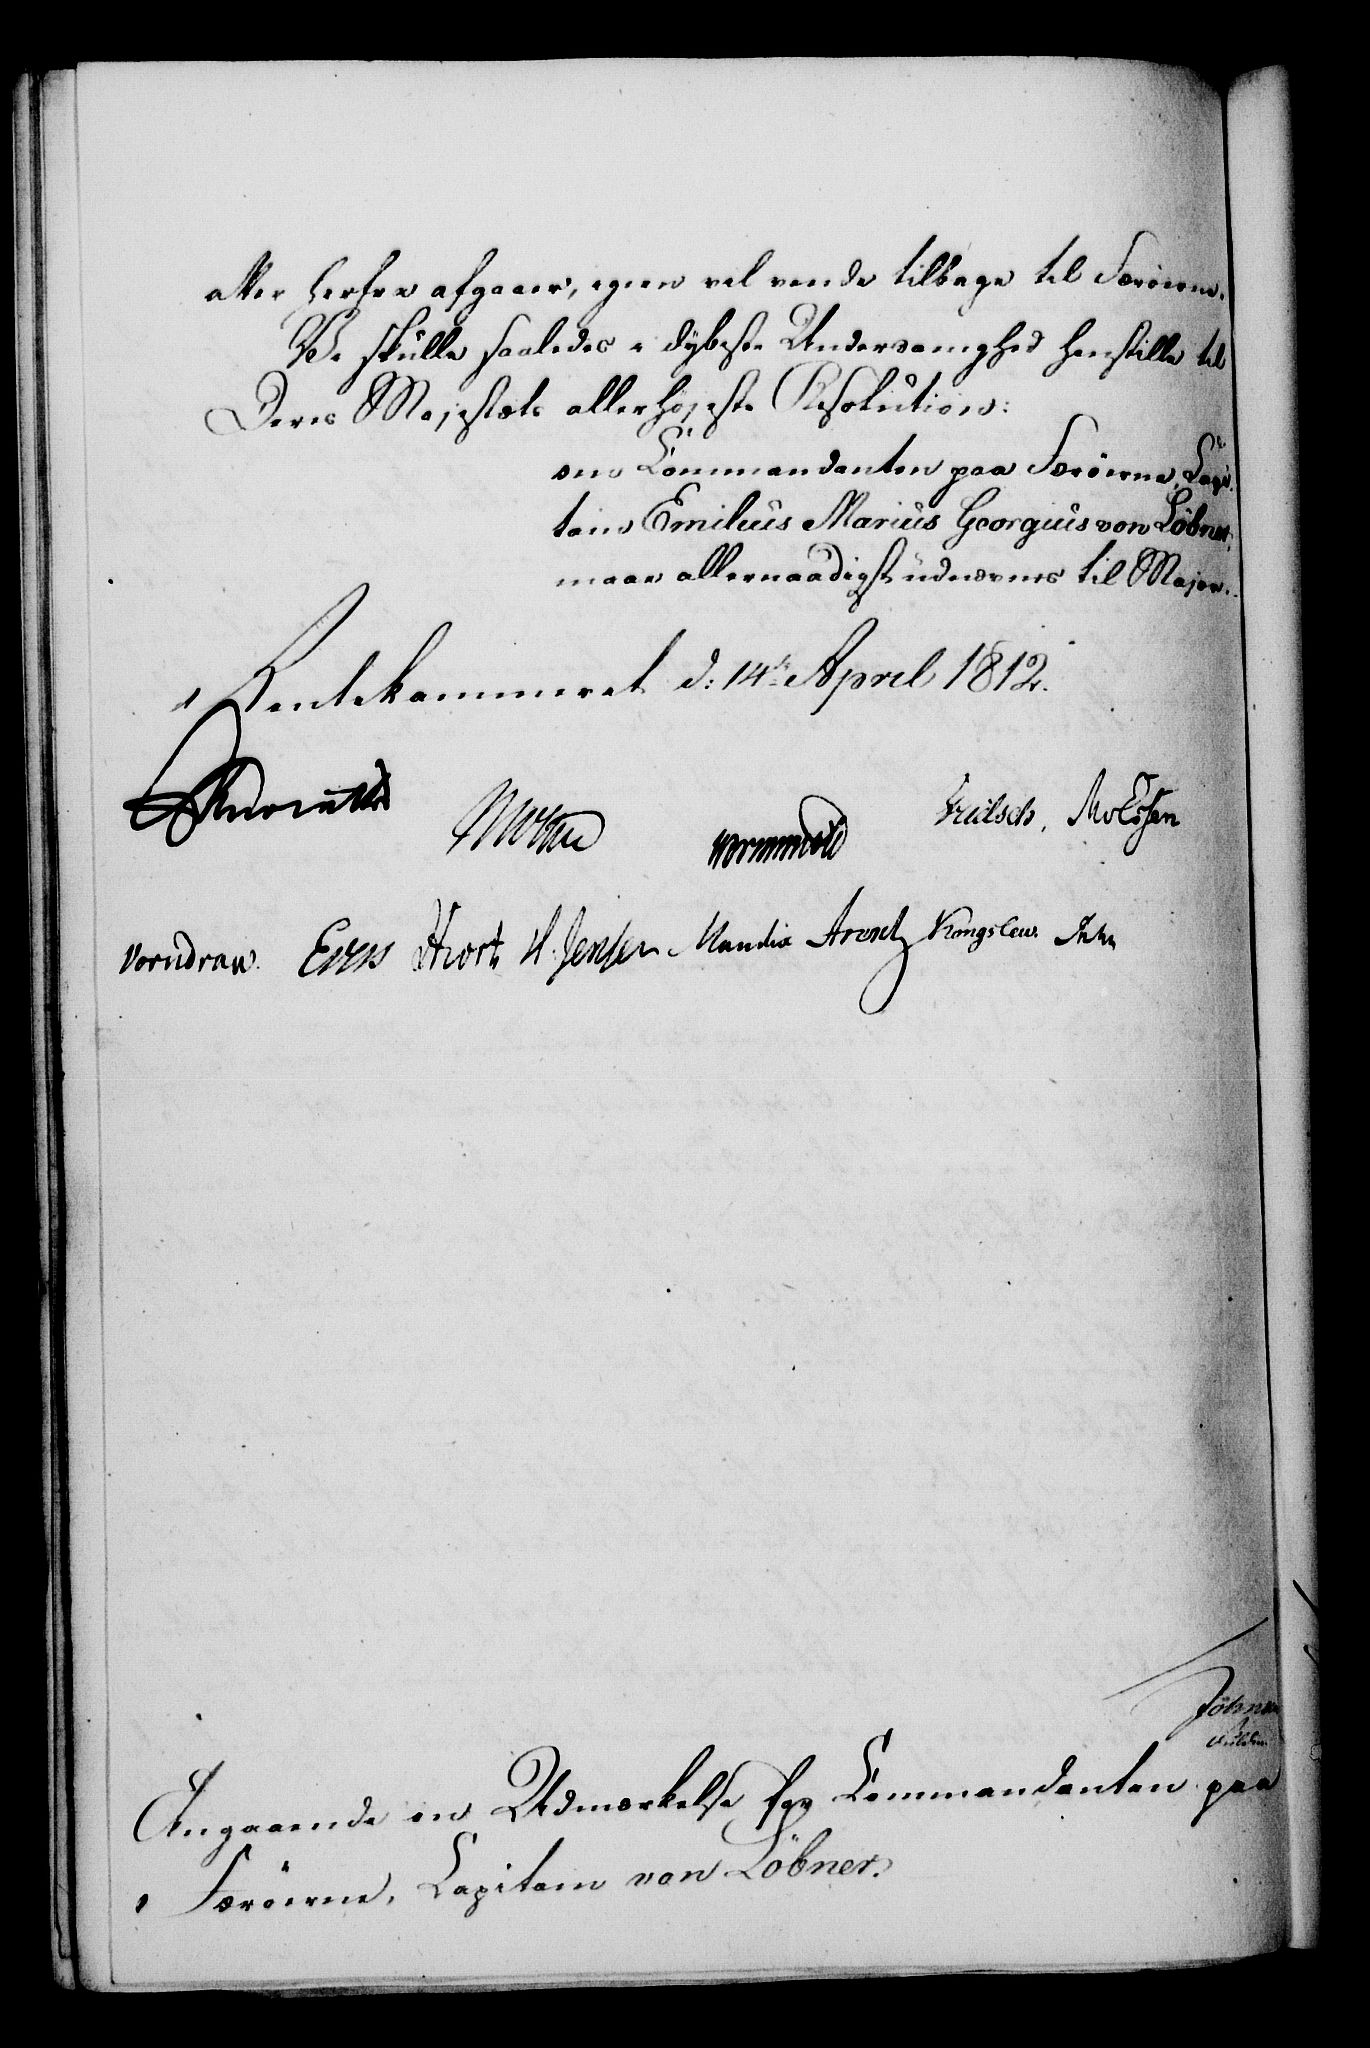 atter herfra afgaaer, igien vel vende tilbage til Færöerne.
Vi skulle saaledes i dybeste Underdanighed henstille til
Deres Majestæts allerhøjeste Resolution:
om Commandanten paa Færöerne, Capi-
tain Emilius Marius Georgius von Löbner,
maae allernaadigst udnævnes til Major.
Rentekammeret d: 14de April 1812.
Wormskiold
Fritsch. Moessen
Vorndran. Evers Hiort H. Jensen Mandix Arentz Kongslew
Angaaende en Udmærkelse for Commandanten paa
Færöerne, Capitain von Löbner.